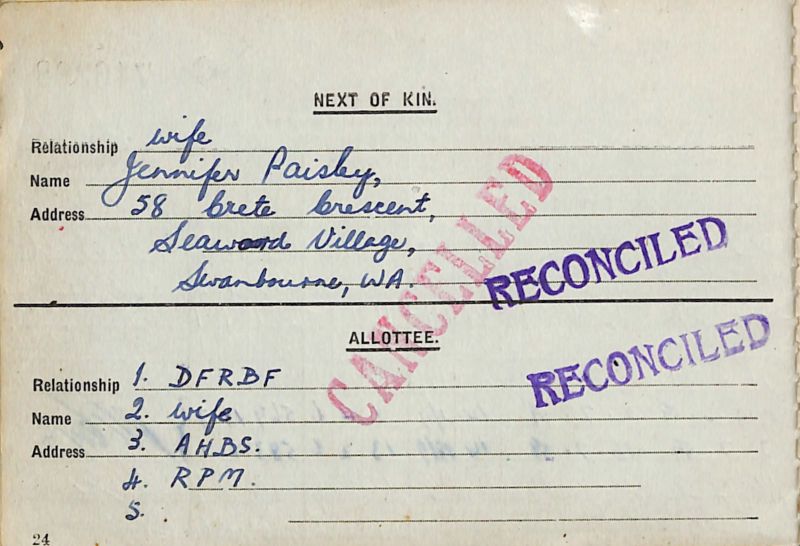 NEXT OF KIN.
Relationship wife
Name Jennifer Paisley,
Address 58 Crete Crescent,
Seaward Village,
Swanbourne, WA.
CANCELLED
RECONCILED
ALLOTTEE.
RECONCILED
Relationship 1. DFRBF
Name 2. wife
Address 3. AHBS.
4. RPM.
5.
24